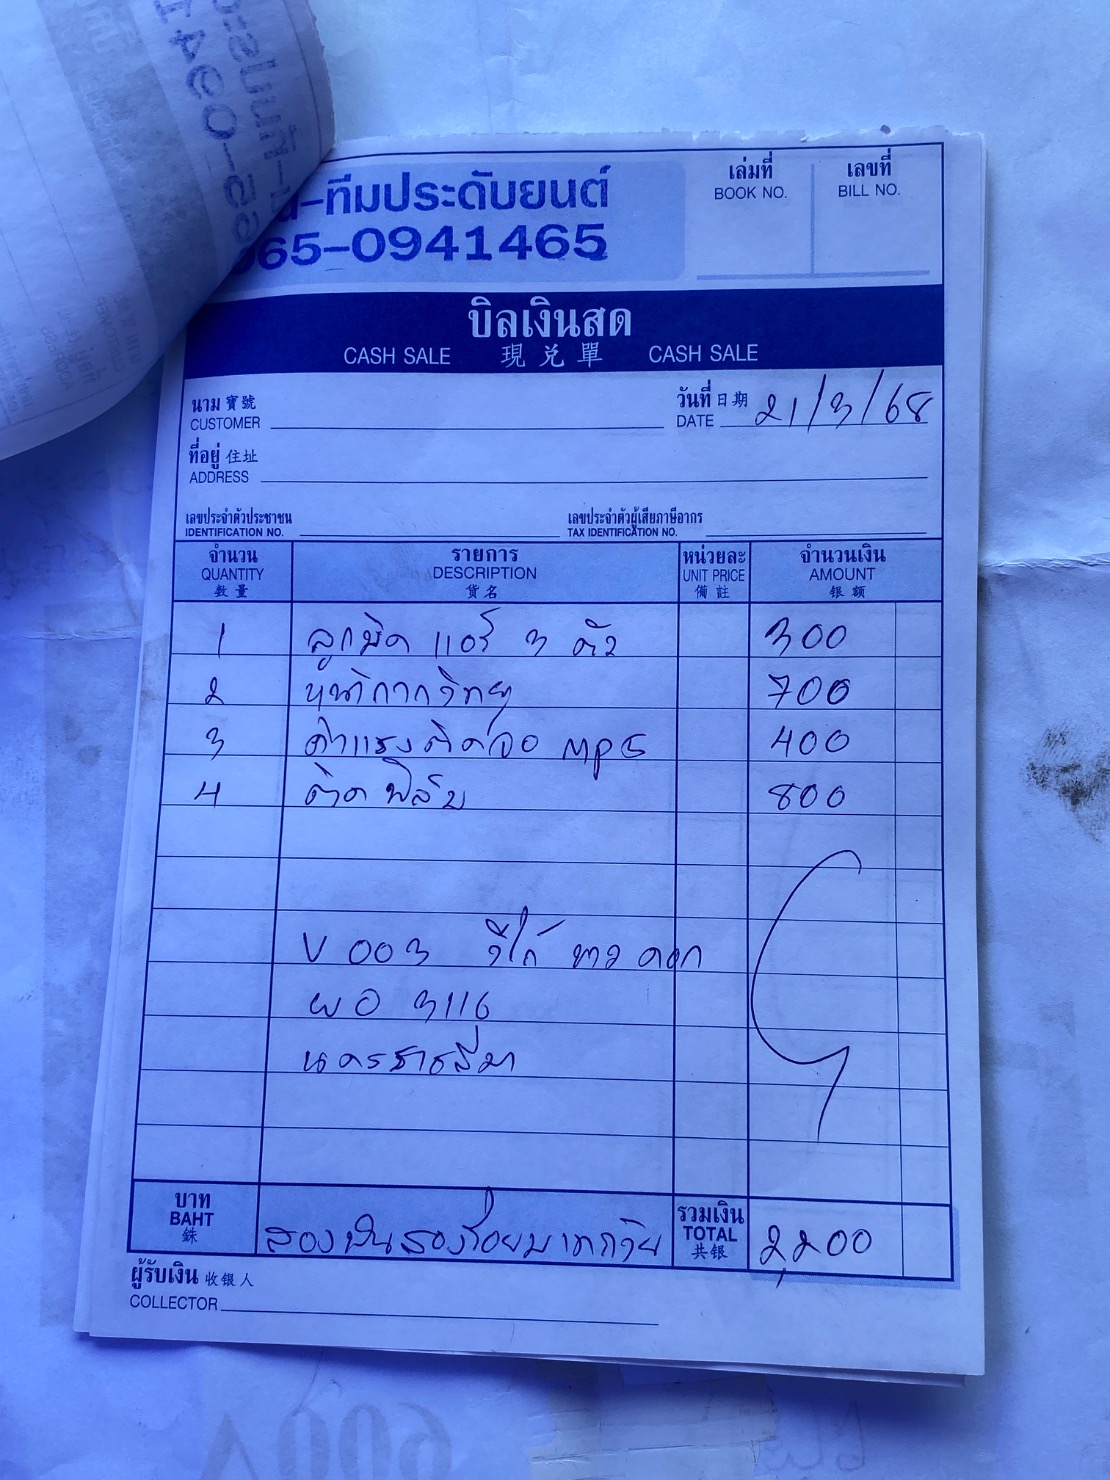 -ทีมประดับยนต์
065-0941465
เล่มที่ เลขที่
BOOK NO. BILL NO.
บิลเงินสด
CASH SALE 現兌單 CASH SALE
นาม 寶號 วันที่ 日期
CUSTOMER DATE 21/3/68
ที่อยู่ 住址
ADDRESS
เลขประจำตัวประชาชน เลขประจำตัวผู้เสียภาษีอากร
IDENTIFICATION NO. TAX IDENTIFICATION NO.
จำนวน รายการ หน่วยละ จำนวนเงิน
QUANTITY DESCRIPTION UNIT PRICE AMOUNT
數量 貨名 備註 銀額
1 ลูกบิด แอร์ 3 ตัว 300
2 หน้ากากวิทยุ 700
3 ค่าแรงติดจอ MP5 400
4 ติดฟิล์ม 800
V 003 วีโก้
ผอ 3116
นครราชสีมา
บาท รวมเงิน
BAHT สองพันสองร้อยบาทถ้วน TOTAL 2,200
銖 共銀
ผู้รับเงิน 收銀人
COLLECTOR